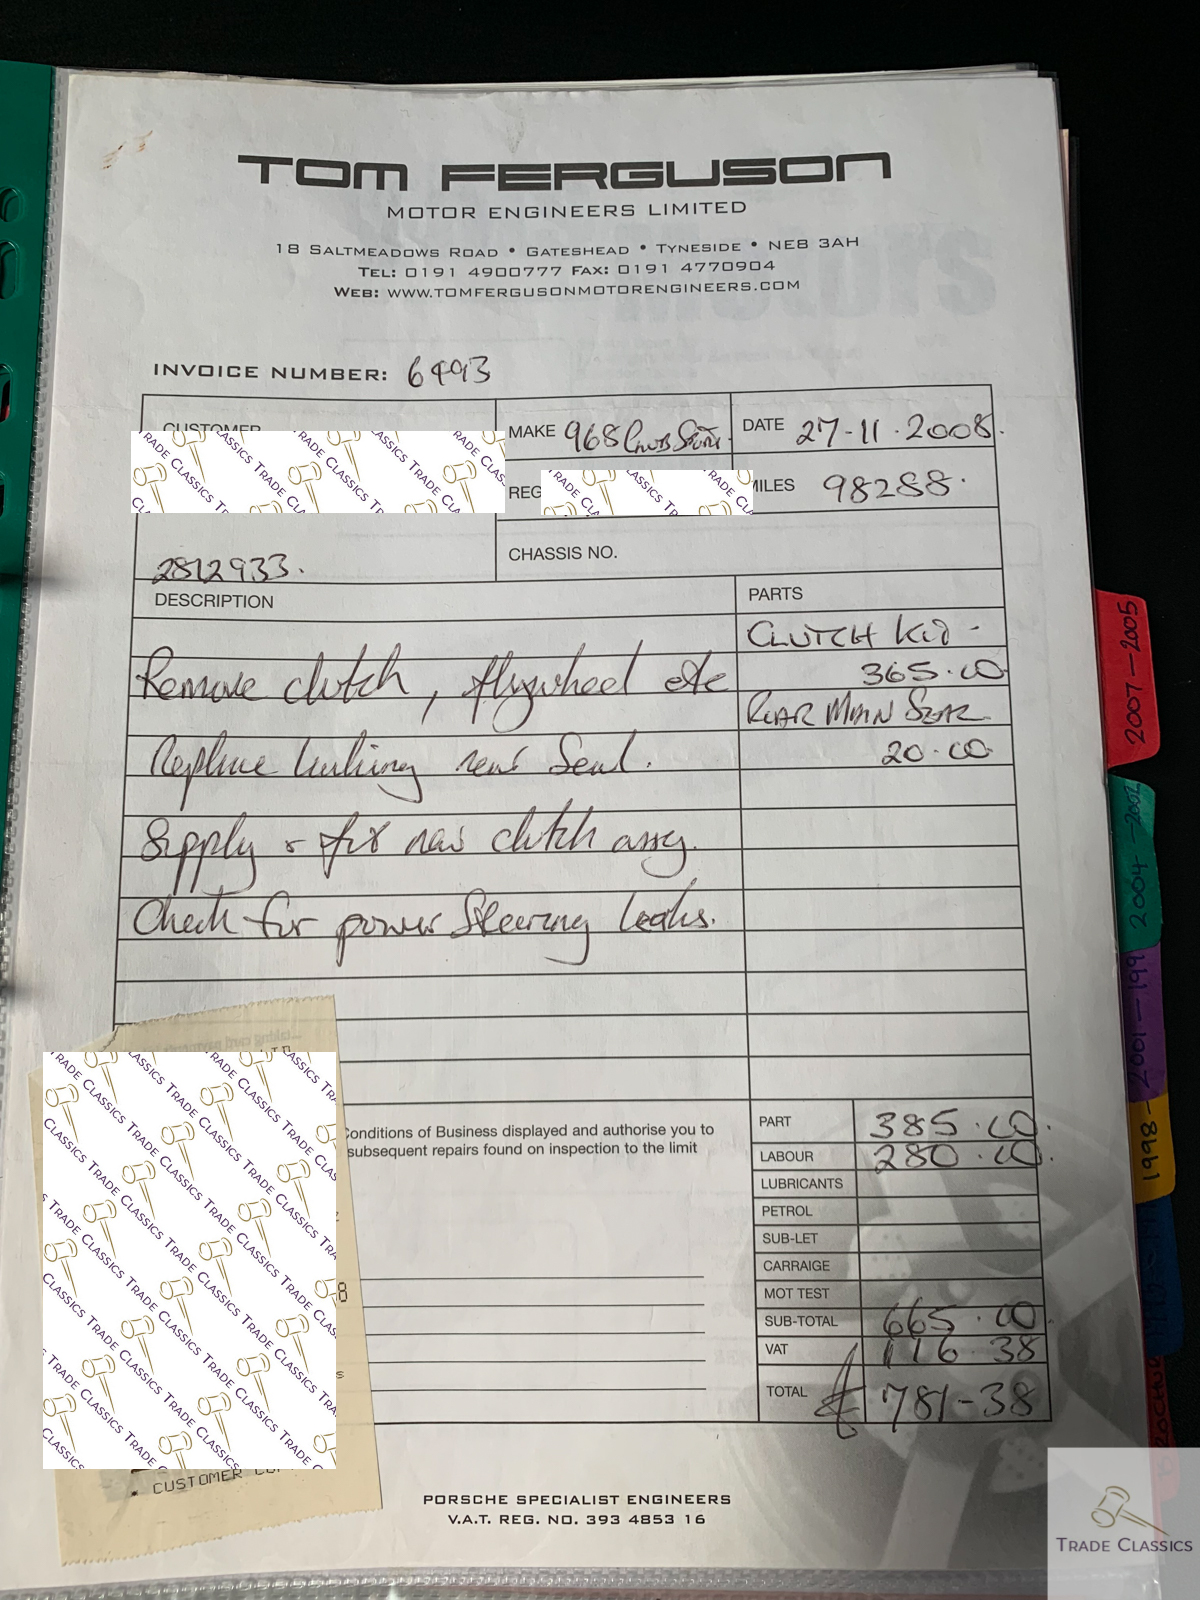 TOM FERGUSON
MOTOR ENGINEERS LIMITED
18 SALTMEADOWS ROAD • GATESHEAD • TYNESIDE • NE8 3AH
TEL: 0191 4900777 FAX: 0191 4770904
WEB: WWW.TOMFERGUSONMOTORENGINEERS.COM
INVOICE NUMBER: 6493
CUSTOMER
MAKE 968 Club Sport
DATE 27-11-2008.
REG
MILES 98288.
CHASSIS NO.
2812933.
DESCRIPTION
PARTS
CLUTCH KIT -
365.00
Remove clutch, flywheel etc
REAR MAIN SEAL
20.00
Replace leaking rear Seal.
Supply & fit new clutch assy.
Check for power Steering leaks.
Conditions of Business displayed and authorise you to
subsequent repairs found on inspection to the limit
PART 385.00.
LABOUR 280.00.
LUBRICANTS
PETROL
SUB-LET
CARRAIGE
MOT TEST
SUB-TOTAL 665.00.
VAT 116.38
TOTAL £ 781-38
CUSTOMER
PORSCHE SPECIALIST ENGINEERS
V.A.T. REG. NO. 393 4853 16
2007-2005
2004-2002
2001-199
1998-
TRADE CLASSICS